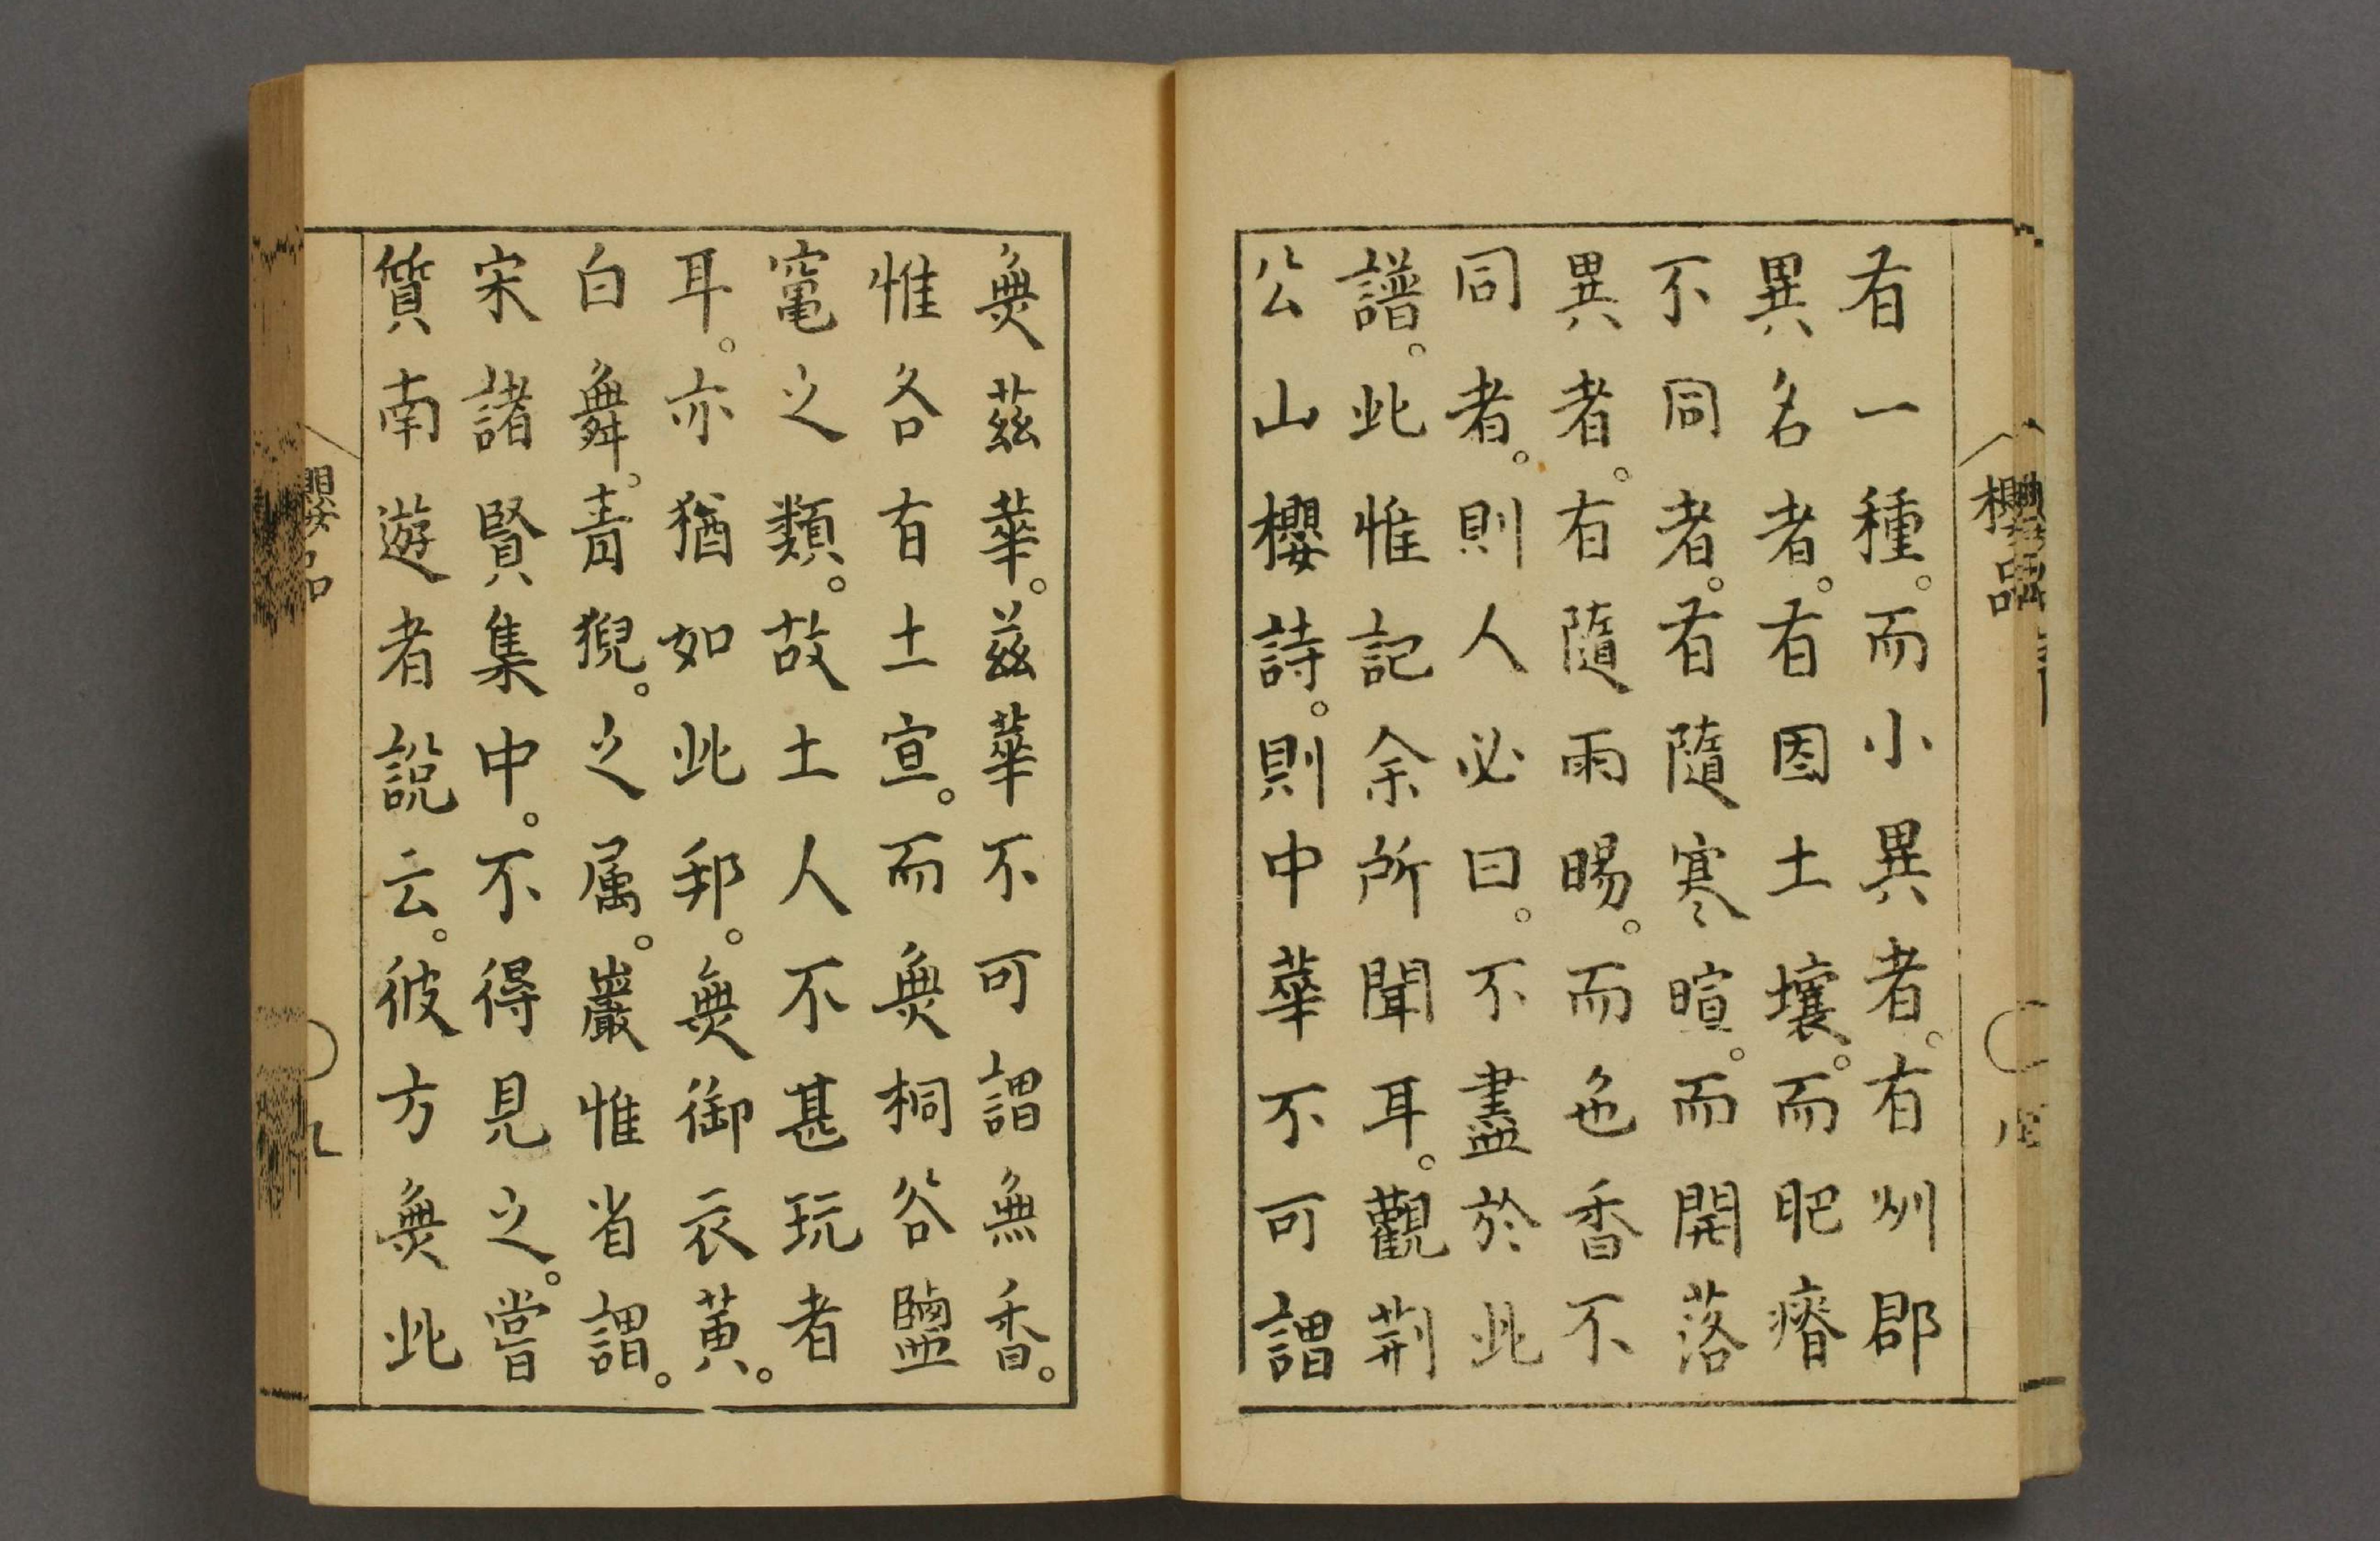 有一種。而小異者。有州郡
異名者。有因土壤。而肥瘠
不同者。有隨寒暄。而開落
異者。有隨雨暘。而色香不
同者。則人必曰。不盡於此
譜。此惟記余所聞耳。觀荊
公山櫻詩。則中華不可謂
無茲華。茲華不可謂無香。
惟各有土宜。而無桐谷鹽
竃之類。故土人不甚玩者
耳。亦猶如此邦。無御衣黄。
白舞。青猊。之属。巖惟省謂。
宋諸賢集中。不得見之。嘗
質南遊者説云。彼方無此
櫻品
櫻品
九